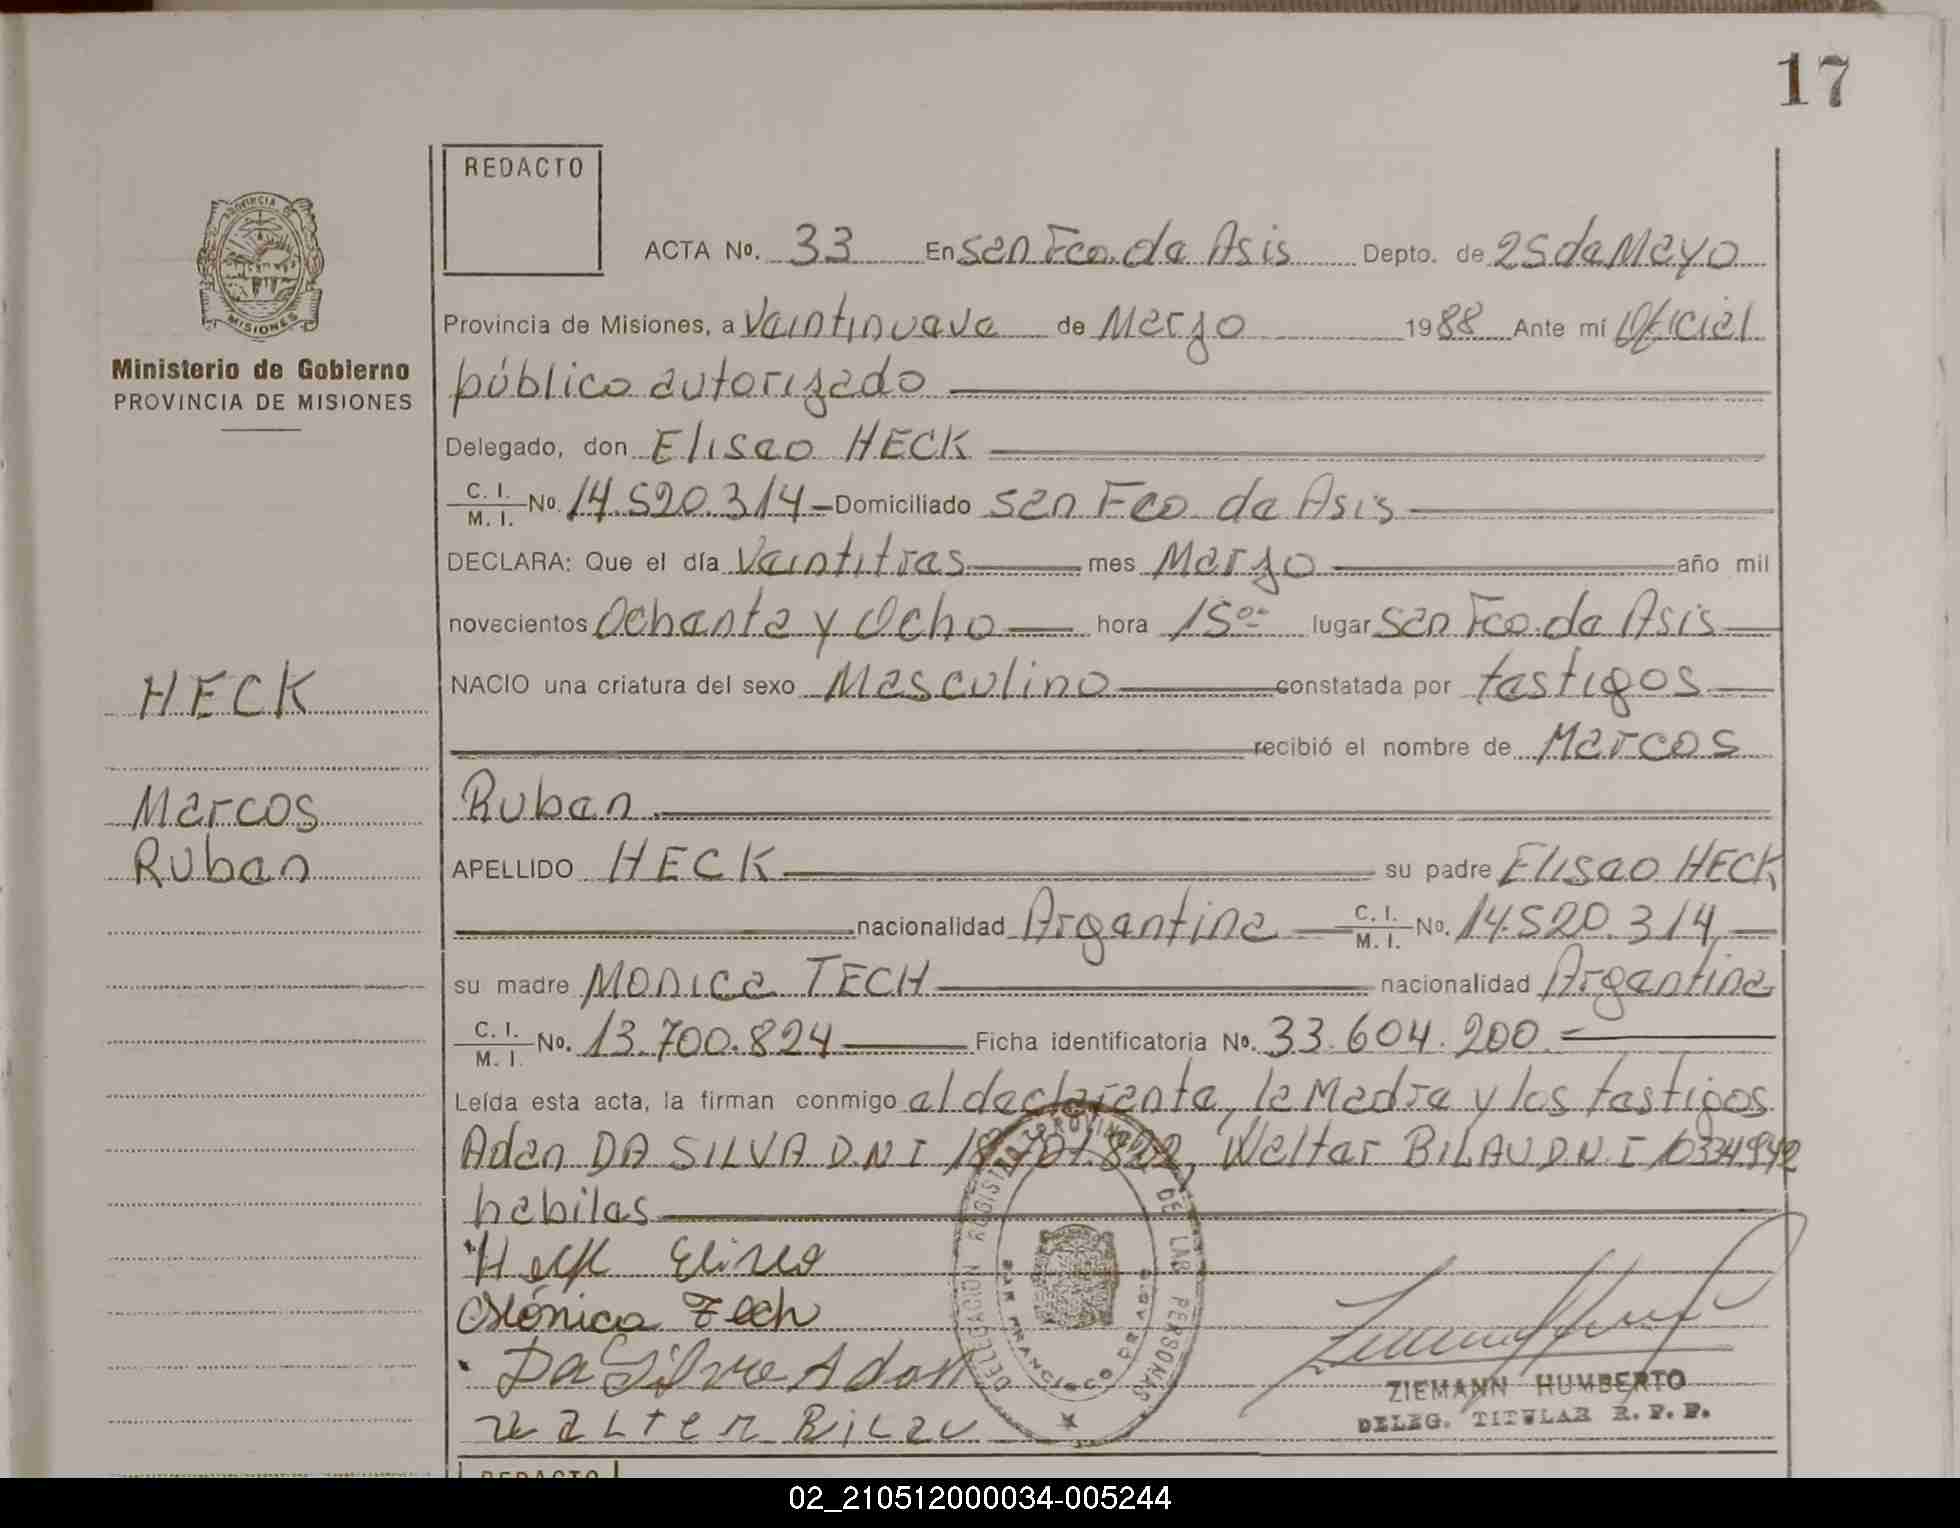 17
REDACTO
ACTA No. 33 En San Fco. de Asis Depto. de 25 de Mayo
PROVINCIA DE MISIONES
Provincia de Misiones, a Veintinueve de Marzo 1988 Ante mí Oficial
Ministerio de Gobierno
PROVINCIA DE MISIONES
público autorizado
Delegado, don Eliseo HECK
C. I. M. I. No. 14.520.314 Domiciliado San Fco. de Asis
DECLARA: Que el día Veintitres mes Marzo año mil
novecientos Ochenta y Ocho hora 15 oo lugar San Fco. de Asis
HECK
NACIO una criatura del sexo Masculino constatada por testigos
recibió el nombre de Marcos
Marcos
Ruben
Ruben
APELLIDO HECK su padre Eliseo HECK
nacionalidad Argentina C. I. M. I. No. 14.520.314
su madre MONICA TECH nacionalidad Argentina
C. I. M. I. No. 13.700.824 Ficha identificatoria No. 33.604.200
Leída esta acta, la firman conmigo el declarante, la Madre y los testigos
Adan DA SILVA D.N I Walter BILAU D.N.I 10334942
habiles
Heck Eliseo
Mónica Tech
Da Silva Adan
Walter Bilau
DELEGACION REGISTRO PROVINCIAL DE LAS PERSONAS
SAN FRANCISCO DE ASIS
ZIEMANN HUMBERTO
DELEG. TITULAR R. P. P.
REDACTO
02_210512000034-005244